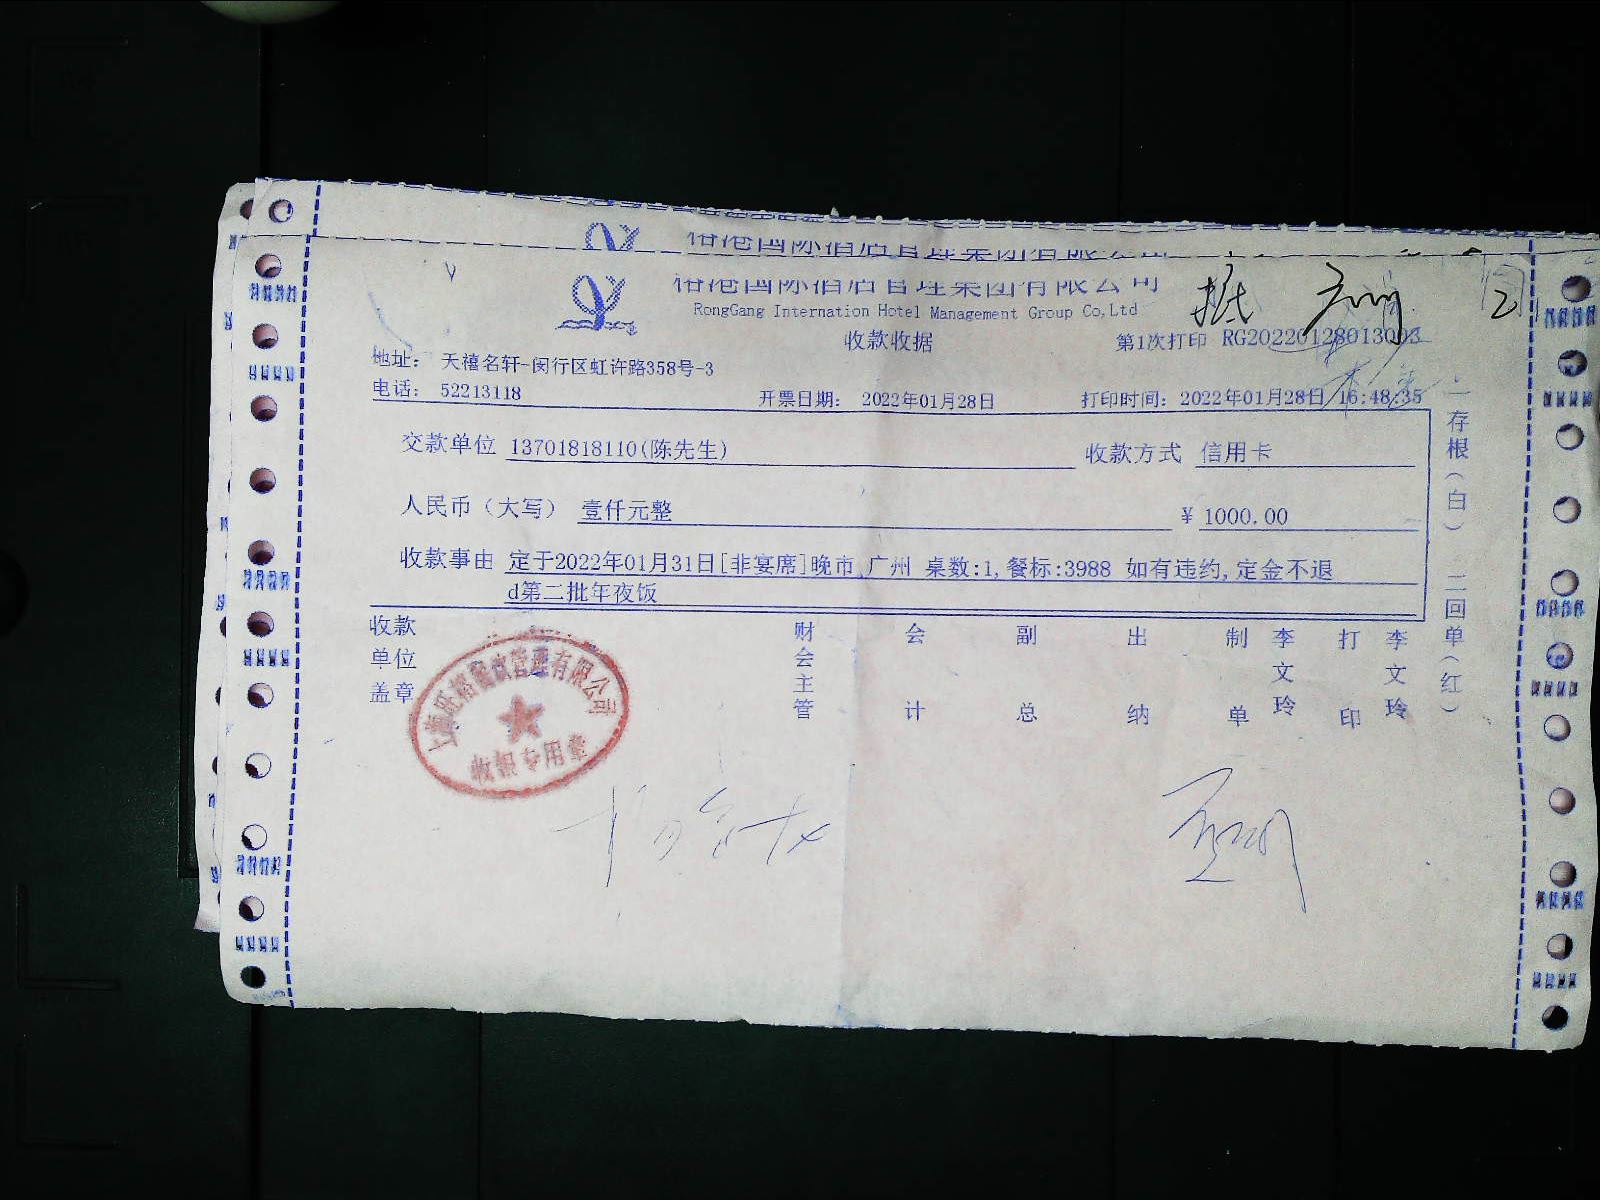 国际酒店管理集团有限公司
国际酒店管理集团有限公司
RongGang Internation Hotel Management Group Co,Ltd
收款收据
第1次打印 RG20220128013003
地址： 天禧名轩-闵行区虹许路358号-3
电话： 52213118
开票日期： 2022年01月28日
打印时间：2022年01月28日 16:48:35
交款单位 13701818110(陈先生)
收款方式 信用卡
人民币（大写） 壹仟元整
¥ 1000.00
收款事由 定于2022年01月31日[非宴席]晚市 广州 桌数:1,餐标:3988 如有违约,定金不退
d第二批年夜饭
一存根（白） 二回单（红）
收款单位盖章
财会主管
会计
副总
出纳
制单
李文玲
打印
李文玲
餐饮管理有限公司
收银专用章